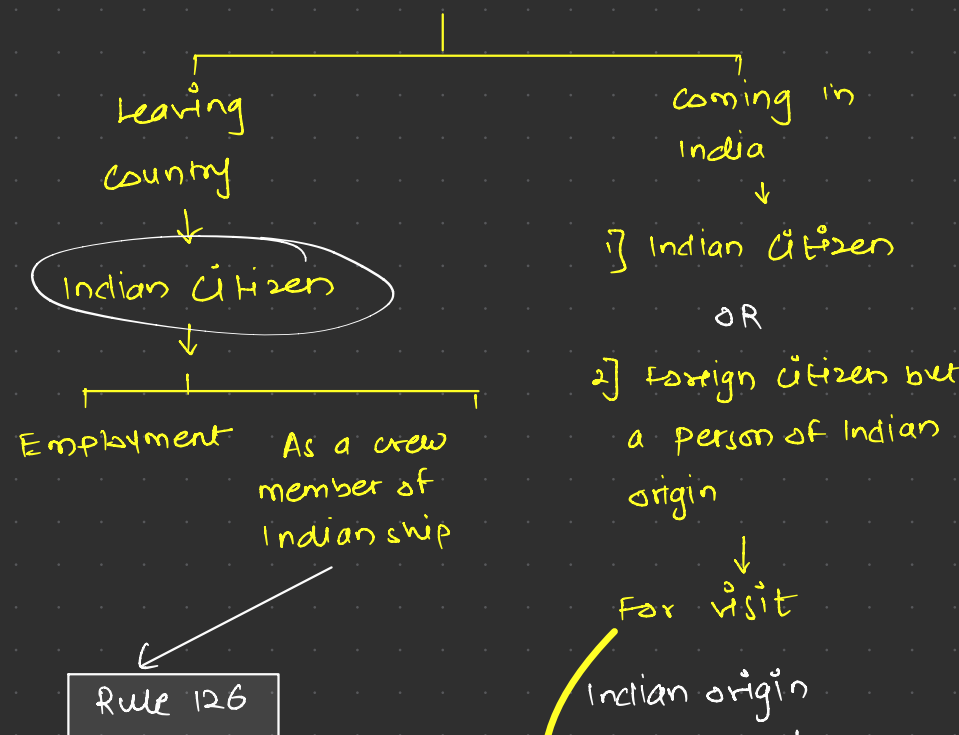 Leaving
country
Indian citizen
Employment
As a crew
member of
Indian ship
Rule 126
coming in
India
1] Indian citizen
OR
2] Foreign citizen but
a person of Indian
origin
For visit
Indian origin